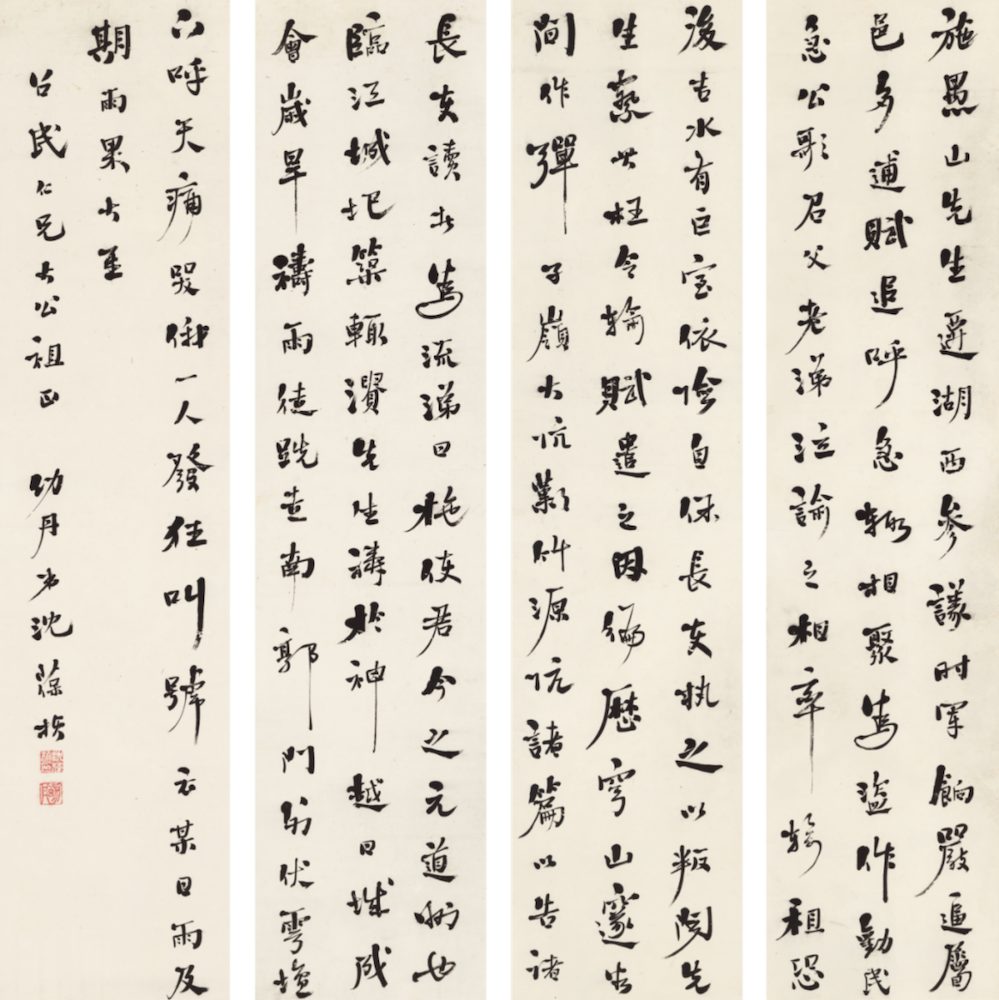 施愚山先生遷湖西參議時軍餉嚴逼屬
邑多逋賦追呼急輒相聚為盜作勸民
急公歌召父老涕泣諭之相率輸租恐
後吉水有巨室依險自保長吏執之以叛聞先
生察其枉令輸賦遣之因徧歷窮山邃谷
間作彈子嶺大坑歎竹源坑諸篇以告諸
長吏讀者為流涕曰施使君今之元道州也
臨江城圮築輒潰先生禱於神越日城成
會歲旱禱雨徒跣走南郭門外伏雩壇
下呼天痛哭俄一人發狂叫號云某日雨及
期雨果大至
召民仁兄大公祖正 幼丹弟沈葆楨